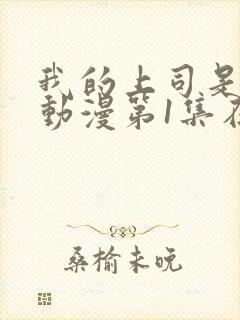 我的上司是
動漫第1集在
桑榆未晚